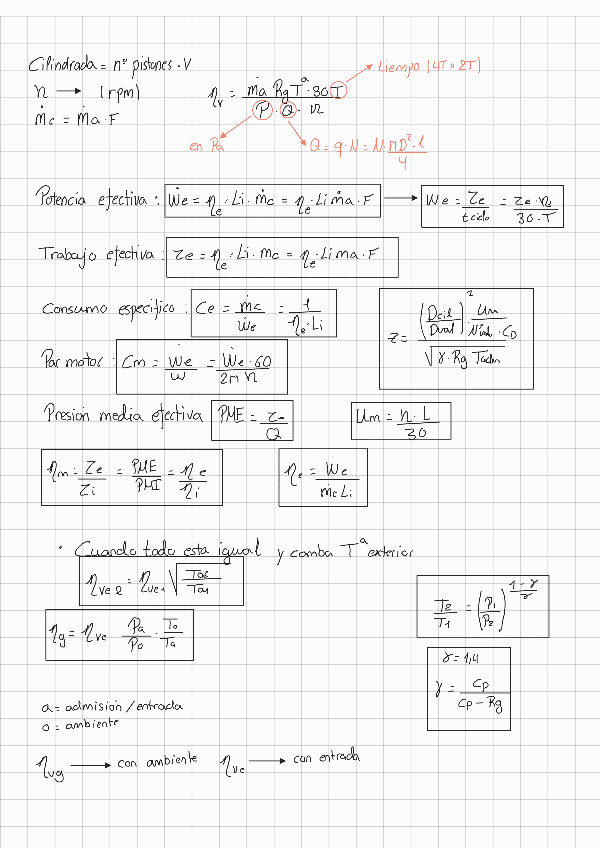 Cilindrada = nº pistones · V
tiempo (4T o 2T)
n → (rpm)
ηv = ṁa Rg Tª · 30 T / P · Q · n
ṁc = ṁa · F
en Pa
Q = q · N = N · πD² · L / 4
Potencia efectiva : Ẇe = ηe · Li · ṁc = ηe · Li ṁa · F → We = Ze / tciclo = Ze · n / 30 · T
Trabajo efectiva : Ze = ηe · Li · mc = ηe · Li ma · F
Consumo especifico : Ce = ṁc / Ẇe = 1 / ηe · Li
z = (Dcil / Dval)² Um / Nºval · CD / √γ · Rg Tadm
Par motor : Cm = Ẇe / ω = Ẇe · 60 / 2π n
Presión media efectiva PME = Ze / Q
Um = n · L / 30
ηm = Ze / Zi = PME / PMI = ηe / ηi
ηe = We / ṁc Li
· Cuando todo esta igual y camba Tª exterior
ηve2 = ηve1 √Ta2 / Ta1
T2 / T1 = (P1 / P2)^(1-γ / γ)
ηg = ηve Pa / Po · To / Ta
γ = 1,4
γ = Cp / Cp - Rg
a = admisión / entrada
o = ambiente
ηvg → con ambiente
ηve → con entrada